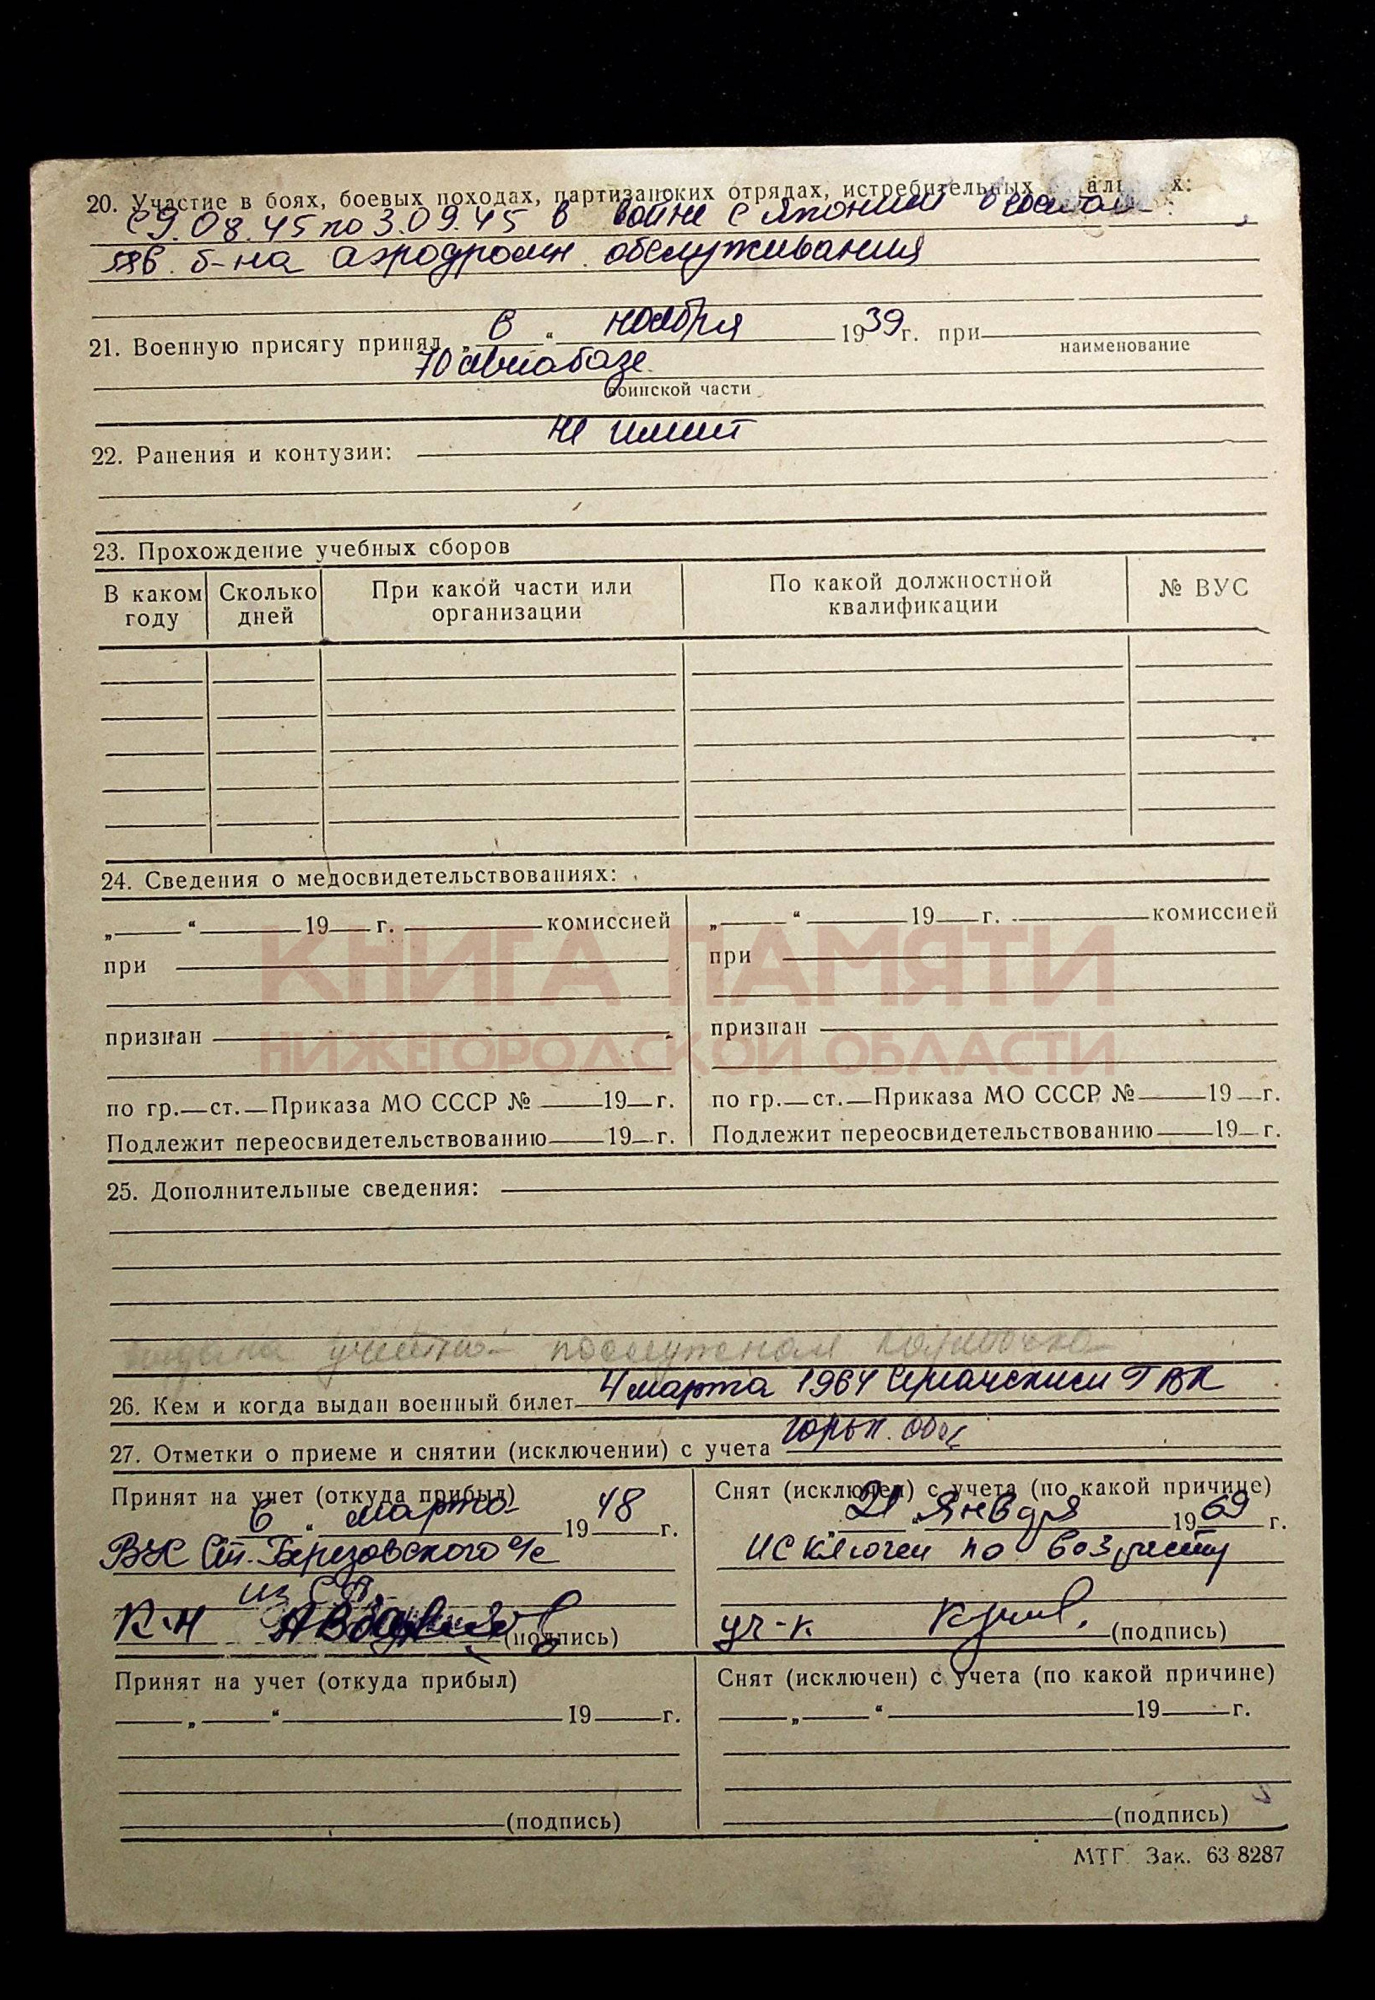 20. Участие в боях, боевых походах, партизанских отрядах, истребительных
с 9.08.45 по 3.09.45 в войне с Японией в составе
б-на аэродромн. обслуживания
21. Военную присягу принял „ 6 “ ноября 1939 г. при
наименование
70 авиабазе
воинской части
не имеет
22. Ранения и контузии:
23. Прохождение учебных сборов
В каком году Сколько дней При какой части или организации По какой должностной квалификации № ВУС
24. Сведения о медосвидетельствованиях:
„ “ 19 г. комиссией „ “ 19 г. комиссией
при при
КНИГА ПАМЯТИ
признан признан
НИЖЕГОРОДСКОЙ ОБЛАСТИ
по гр. ст. Приказа МО СССР № 19 г. по гр. ст. Приказа МО СССР № 19 г.
Подлежит переосвидетельствованию 19 г. Подлежит переосвидетельствованию 19 г.
25. Дополнительные сведения:
учетно послужная карточка
26. Кем и когда выдан военный билет 4 марта 1964 Сергачским ГВК
Горьк. обл
27. Отметки о приеме и снятии (исключении) с учета
Принят на учет (откуда прибыл) Снят (исключен) с учета (по какой причине)
6 “ марта 1948 г. 21 “ января 1969 г.
ВК Ст.-Березовского исключен по возрасту
из
к-н (подпись) уч-к (подпись)
Принят на учет (откуда прибыл) Снят (исключен) с учета (по какой причине)
„ “ 19 г. „ “ 19 г.
(подпись) (подпись)
МТГ Зак. 63 8287